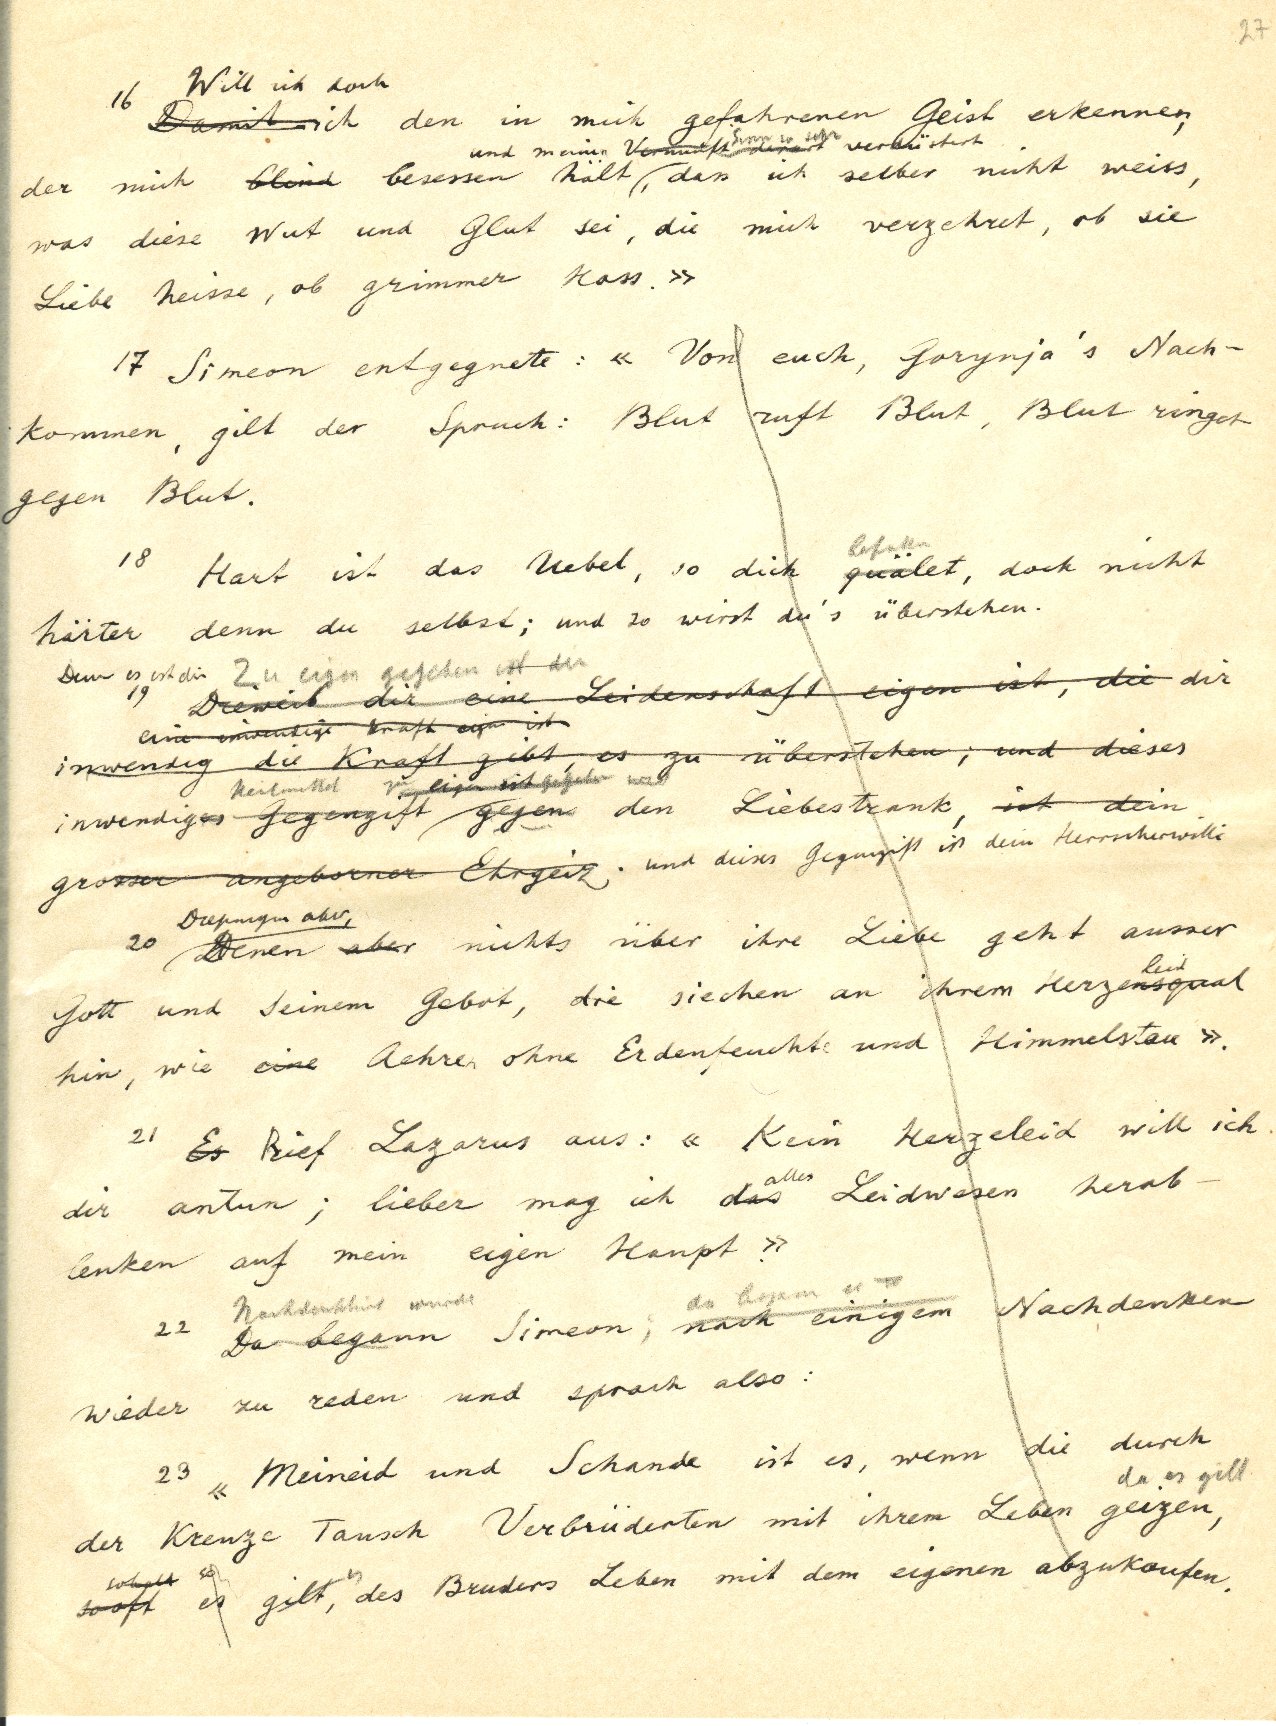 27
Will ich doch
16 Damit ich den in mich gefahrenen Geist erkennen,
und meinen Vernunft derart verdüstert
Sinn so sehr
der mich blind besessen hält, dass ich selber nicht weiss,
was diese Wut und Glut sei, die mich verzehret, ob sie
Liebe heisse, ob grimmer Hass.»
17 Simeon entgegnete: « Von euch, Gorynja's Nach-
kommen, gilt der Spruch: Blut ruft Blut, Blut ringet
gegen Blut.
befallen
18 Hart ist das Uebel, so dich quälet, doch nicht
härter denn du selbst; und so wirst du's überstehen.
Denn es ist dir Zu eigen gegeben ist der
19 Dieweil dir eine Leidenschaft eigen ist, die dir
eine inwendige Kraft eigen ist
inwendig die Kraft gibt, es zu überstehen; und dieses
Heilmittel zu eigen ist gegeben
inwendiges Gegengift gegen den Liebestrank, ist dein
grosser angeborner Ehrgeiz. und dieses Gegengift ist dein Herrscherwille
Diejenigen aber,
20 Denen aber nichts über ihre Liebe geht ausser
leid
Gott und Seinem Gebot, die siechen an ihrem Herzensqual
hin, wie eine Aehre ohne Erdenfeuchte und Himmelstau ».
21 Es Rief Lazarus aus: « Kein Herzeleid will ich
alles
dir antun; lieber mag ich das Leidwesen herab-
lenken auf mein eigen Haupt »
Nachdenklich wurde da begann er
22 Da begann Simeon, nach einigem Nachdenken
wieder zu reden und sprach also:
23 « Meineid und Schande ist es, wenn die durch
da es gilt
der Kreuze Tausch Verbrüderten mit ihrem Leben geizen,
sobald es es
so oft es gilt, des Bruders Leben mit dem eigenen abzukaufen.